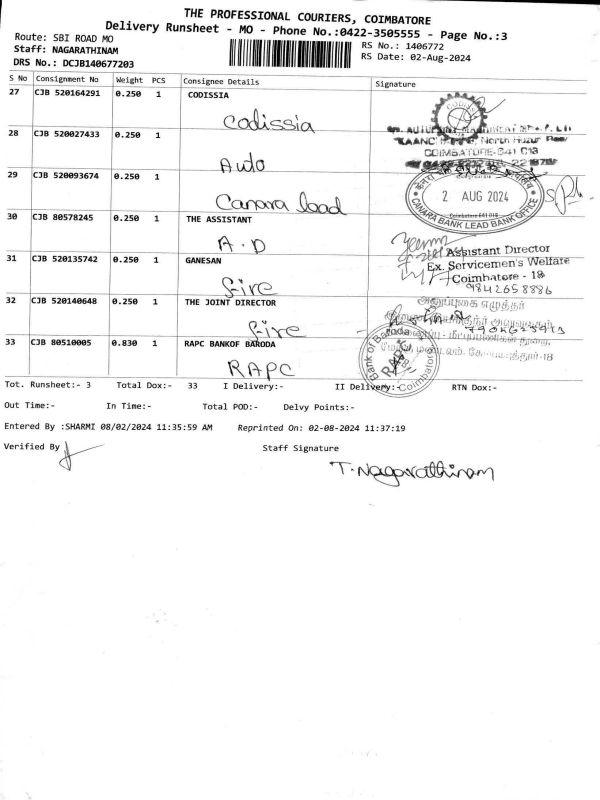 THE PROFESSIONAL COURIERS, COIMBATORE
Delivery Runsheet - MO - Phone No.:0422-3505555 - Page No.:3
Route: SBI ROAD MO
RS No.: 1406772
Staff: NAGARATHINAM
RS Date: 02-Aug-2024
DRS No.: DCJB140677203
S No Consignment No Weight PCS Consignee Details Signature
27 CJB 520164291 0.250 1 CODISSIA
Codissia
28 CJB 520027433 0.250 1
Auto
COIMBATORE-641 018
29 CJB 520093674 0.250 1
Canara lead
2 AUG 2024
CANARA BANK LEAD BANK OFFICE
Coimbatore 641 018
30 CJB 80578245 0.250 1 THE ASSISTANT
A.D
Assistant Director
31 CJB 520135742 0.250 1 GANESAN
Ex. Servicemen's Welfare
Coimbatore - 18
9842658886
fire
32 CJB 520140648 0.250 1 THE JOINT DIRECTOR
அலுவலக எழுத்தர்
fire
33 CJB 80510005 0.830 1 RAPC BANKOF BARODA
RAPC
Bank of Baroda
RAPC
Coimbatore
Tot. Runsheet:- 3 Total Dox:- 33 I Delivery:- II Delivery:- RTN Dox:-
Out Time:- In Time:- Total POD:- Delvy Points:-
Entered By :SHARMI 08/02/2024 11:35:59 AM Reprinted On: 02-08-2024 11:37:19
Verified By Staff Signature
T. Nagarathinam